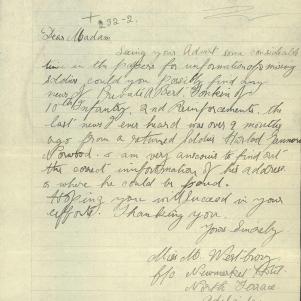 +
232-2.
Dear Madam
Seeing your Advert some considerable
time in the papers for information of missing
soldier, could you possibly find any
news of Private Albert Jonkin of
10th Infantry, 2nd Reinforcements. the
last news I ever heard was over 9 months
ago from a returned Soldier
Norwood. & am very anxious to find out
the correct information of his address
or where he could be found.
Hoping you will succeed in your
efforts. Thanking you.
Yours sincerely
Miss M. West
c/o Newmarket Hotel
North Terrace
Adelaide